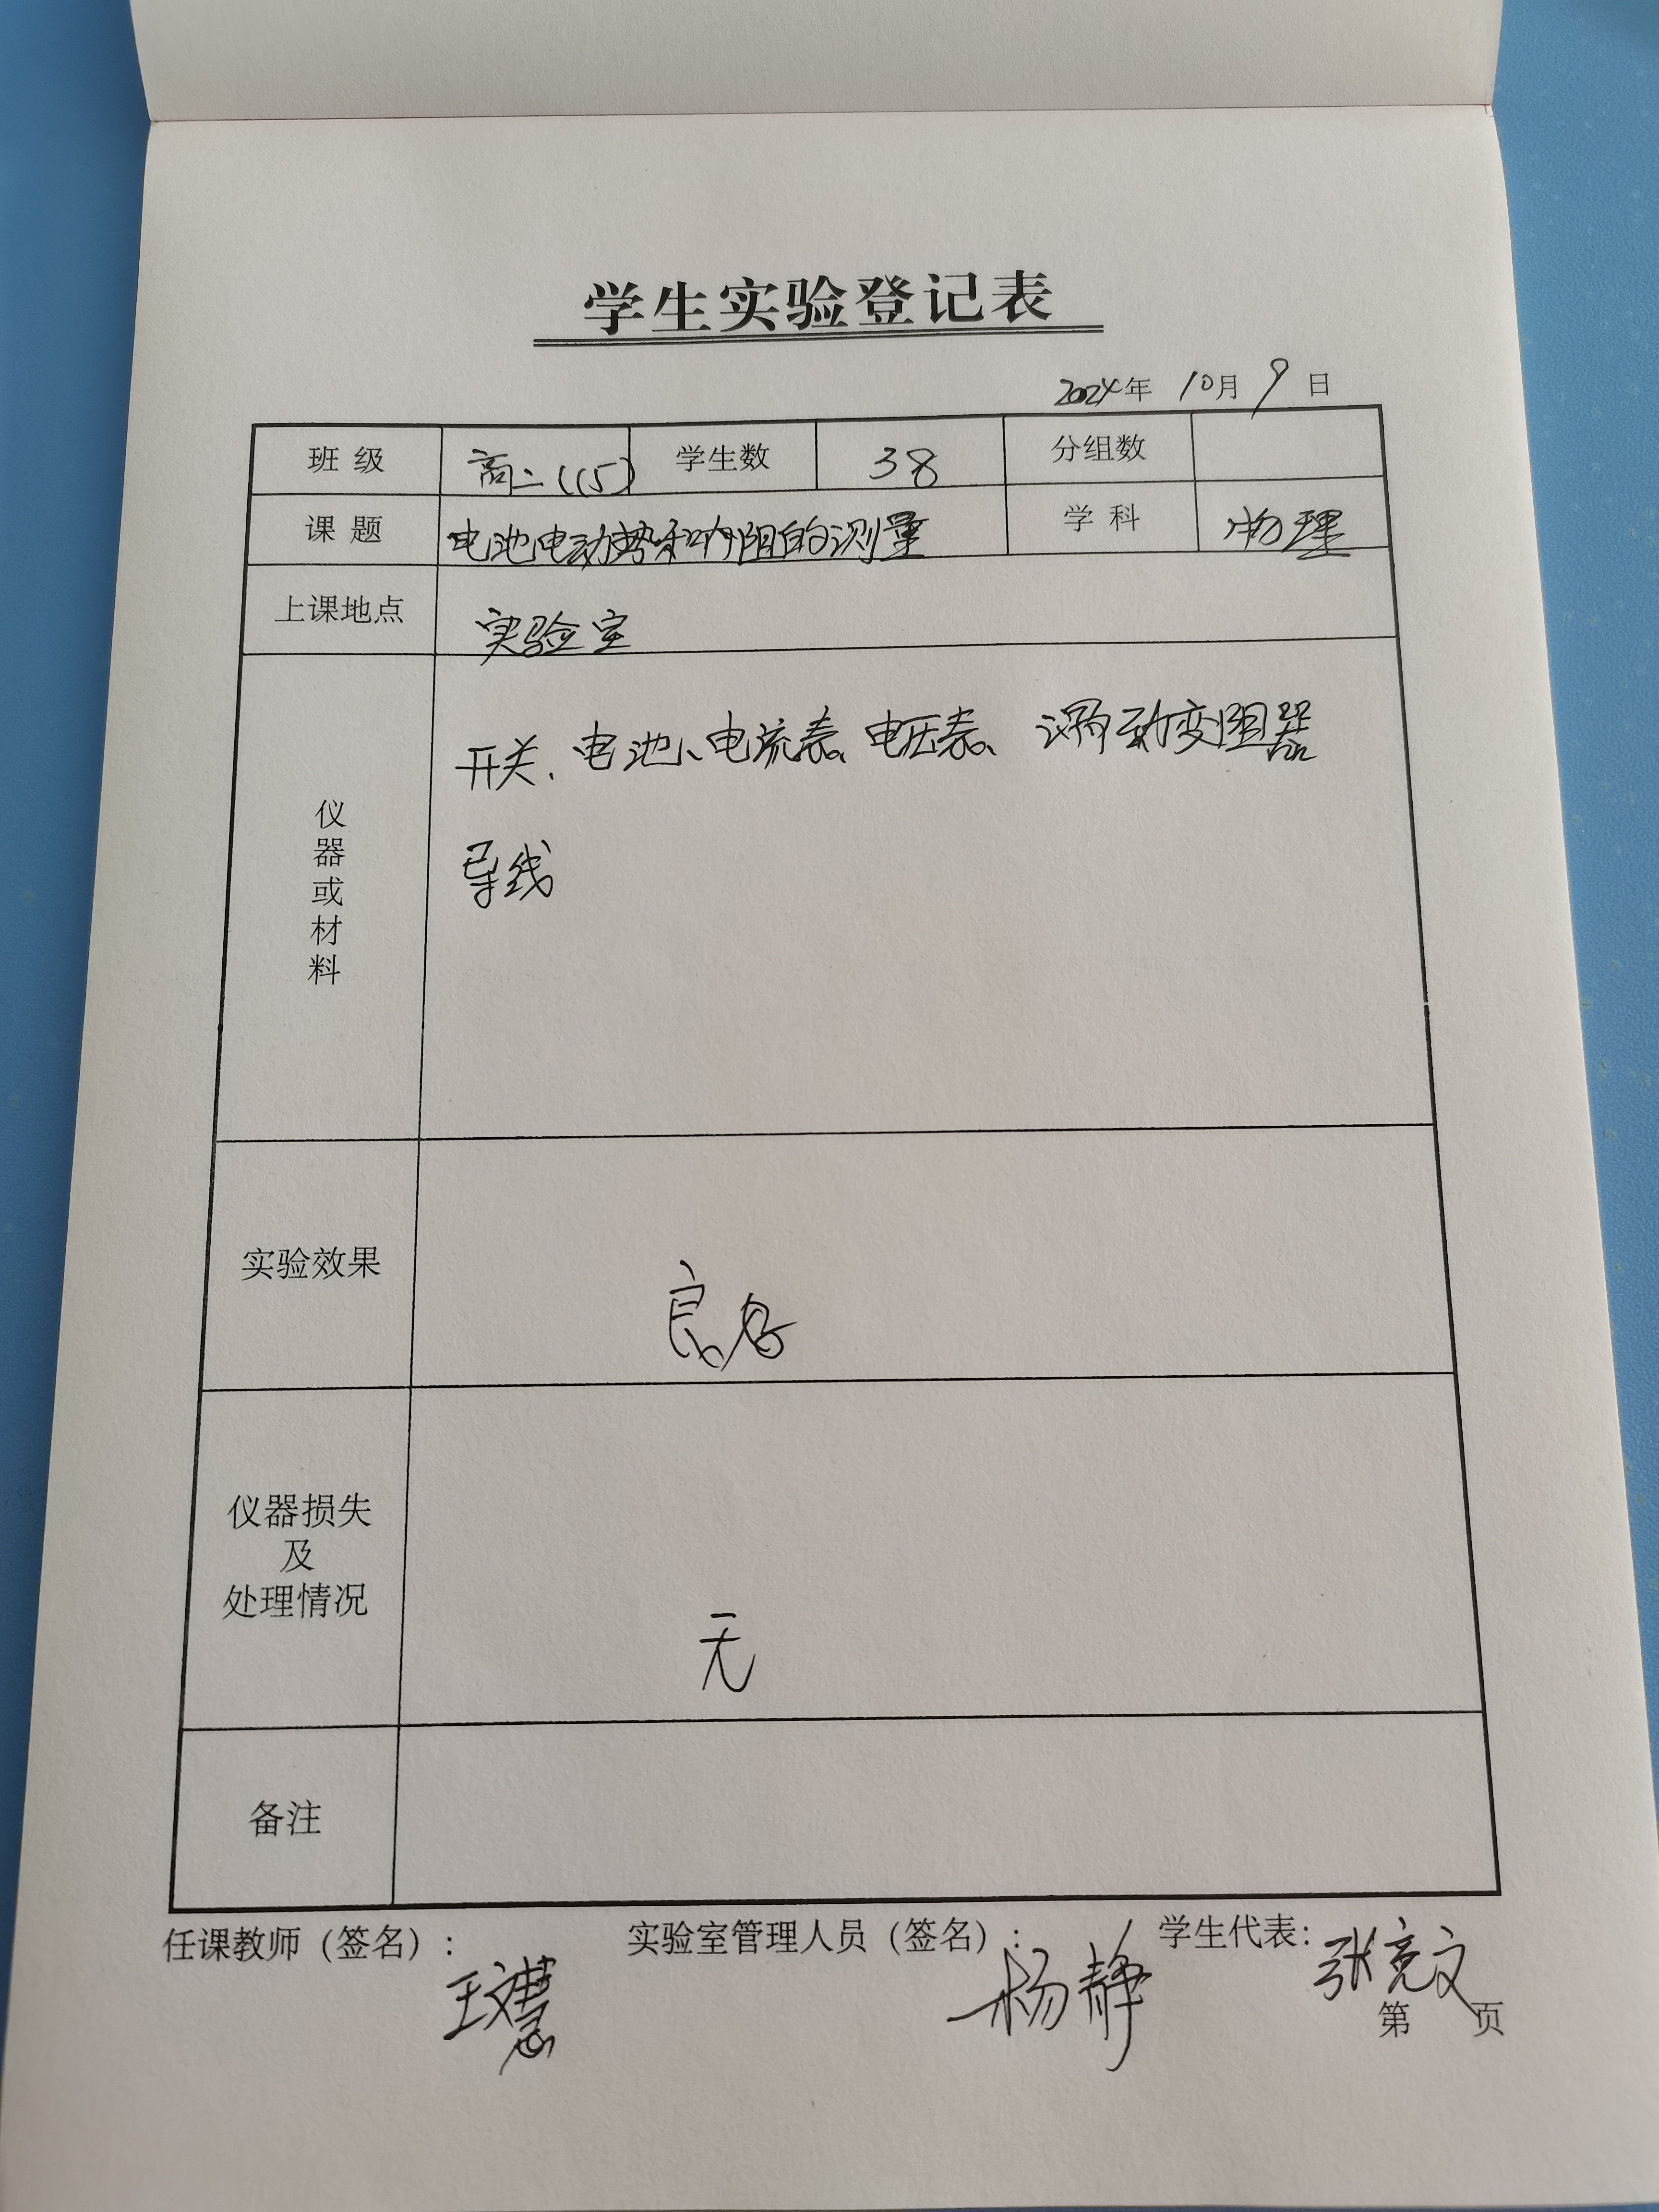 学生实验登记表
2024年 10月 9日
班级 高二(15) 学生数 38 分组数
课题 电池电动势和内阻的测量 学科 物理
上课地点 实验室
仪器或材料 开关、电池、电流表、电压表、滑动变阻器
导线
实验效果 良好
仪器损失
及
处理情况 无
备注
任课教师（签名）： 实验室管理人员（签名）： 学生代表：
王文慧 杨静 张亮文
第 页